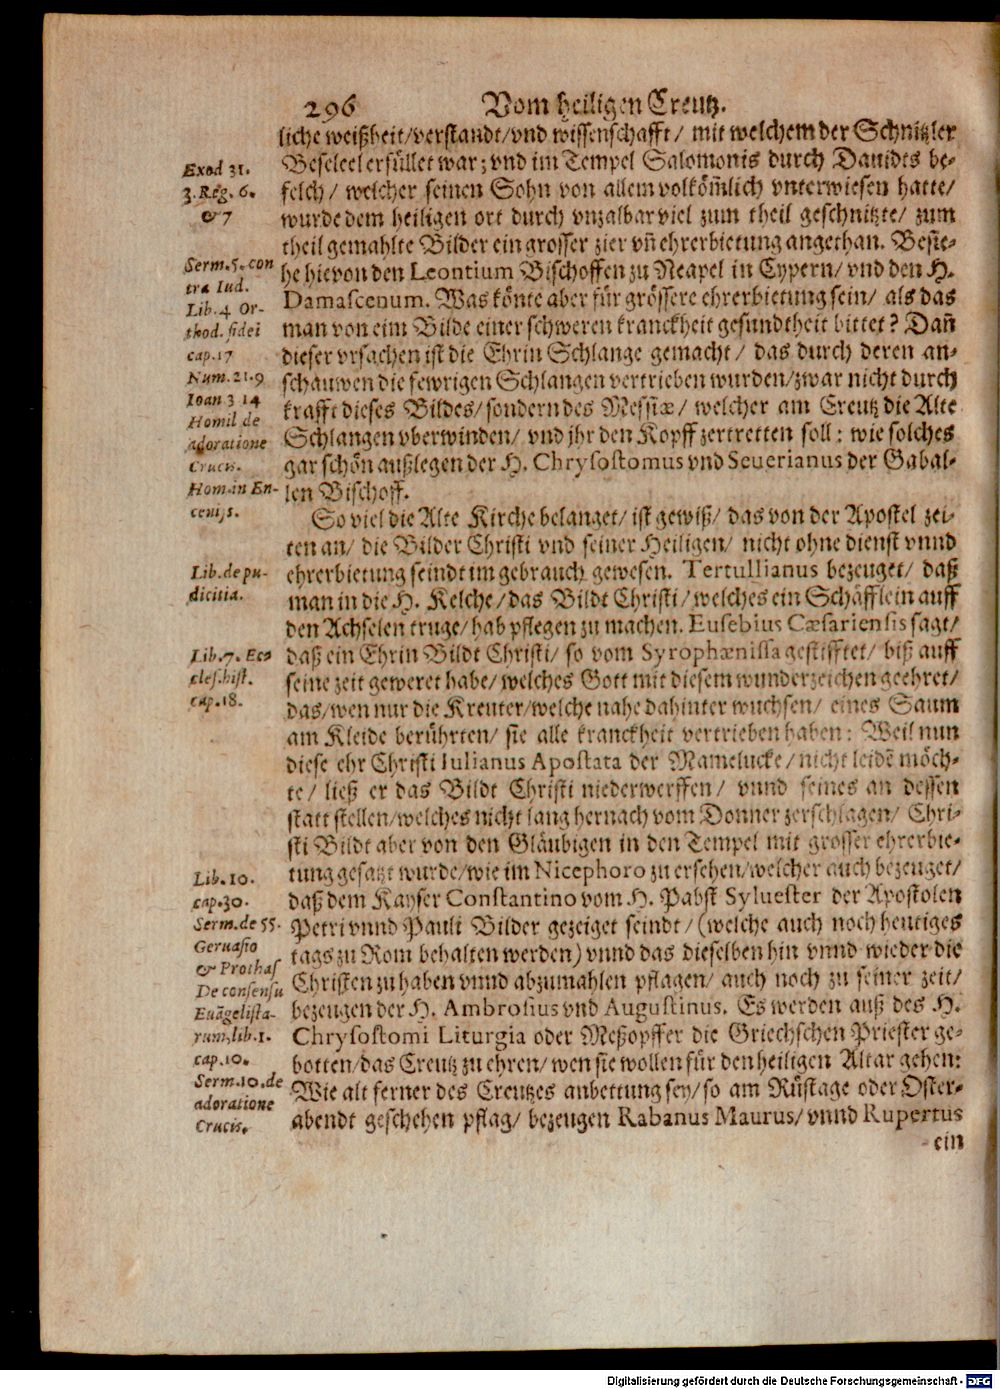 296 Vom heiligen Creutz.
liche weißheit/verstandt/vnd wissenschafft/ mit welchem der Schnitzler
Beseleel erfüllet war; vnd im Tempel Salomonis durch Dauidts be-
felch/ welcher seinen Sohn von allem volköm̃lich vnterwiesen hatte/
wurde dem heiligen ort durch vnzalbar viel zum theil geschnitzte/ zum
theil gemahlte Bilder ein grosser zier vñ ehrerbietung angethan. Besie-
he hievon den Leontium Bischoffen zu Neapel in Cypern/ vnd den H.
Damascenum. Was könte aber für grössere ehrerbietung sein/ als das
man von eim Bilde einer schweren kranckheit gesundtheit bittet? Dañ
dieser vrsachen ist die Ehrin Schlange gemacht/ das durch deren an-
schauwen die fewrigen Schlangen vertrieben wurden/zwar nicht durch
krafft dieses Bildes/sondern des Messiæ/ welcher am Creutz die Alte
Schlangen vberwinden/ vnd jhr den Kopff zertretten soll: wie solches
gar schön außlegen der H. Chrysostomus vnd Seuerianus der Gabal-
len Bischoff.
So viel die Alte Kirche belanget/ ist gewiß/ das von der Apostel zei-
ten an/ die Bilder Christi vnd seiner Heiligen/ nicht ohne dienst vnnd
ehrerbietung seindt im gebrauch gewesen. Tertullianus bezeuget/ daß
man in die H. Kelche/das Bildt Christi/welches ein Schäfflein auff
den Achselen truge/hab pflegen zu machen. Eusebius Cæsariensis sagt/
daß ein Ehrin Bildt Christi/ so vom Syrophænissa gestifftet/ biß auff
seine zeit geweret habe/welches Gott mit diesem wunderzeichen geehret/
das/wen nur die Kreuter/welche nahe dahinter wuchsen/ eines Saum
am Kleide berührten/ sie alle kranckheit vertrieben haben: Weil nun
diese ehr Christi Iulianus Apostata der Mamelucke/nicht leidẽ möch-
te/ ließ er das Bildt Christi niederwerffen/ vnnd seines an dessen
statt stellen/welches nicht lang hernach vom Donner zerschlagen/ Chri-
sti Bildt aber von den Gläubigen in den Tempel mit grosser ehrerbie-
tung gesatzt wurde/wie im Nicephoro zu ersehen/welcher auch bezeuget/
daß dem Kayser Constantino vom H. Pabst Syluester der Apostolen
Petri vnnd Pauli Bilder gezeiget seindt/ (welche auch noch heutiges
tags zu Rom behalten werden) vnnd das dieselben hin vnnd wieder die
Christen zu haben vnnd abzumahlen pflagen/ auch noch zu seiner zeit/
bezeugen der H. Ambrosius vnd Augustinus. Es werden auß des H.
Chrysostomi Liturgia oder Meßopffer die Griechschen Priester ge-
botten/das Creutz zu ehren/wen sie wollen für den heiligen Altar gehen:
Wie alt ferner des Creutzes anbettung sey/so am Rüstage oder Oster-
abendt geschehen pflag/ bezeugen Rabanus Maurus/ vnnd Rupertus
ein
Exod 31.
3. Reg. 6.
& 7
Serm. 5. con
tra Iud.
Lib. 4 Or-
thod. fidei
cap. 17
Num. 21. 9
Ioan 3 14
Homil de
adoratione
Crucis.
Hom in En-
cenijs.
Lib. de pu-
dicitia.
Lib. 7. Ecc
cles. hist.
cap. 18.
Lib. 10.
cap. 30.
Serm. de 55.
Geruasio
& Prothas
De consensu
Euãgelista-
rum, lib. 1.
cap. 10.
Serm. 10. de
adoratione
Crucis.
Digitalisierung gefördert durch die Deutsche Forschungsgemeinschaft - DFG